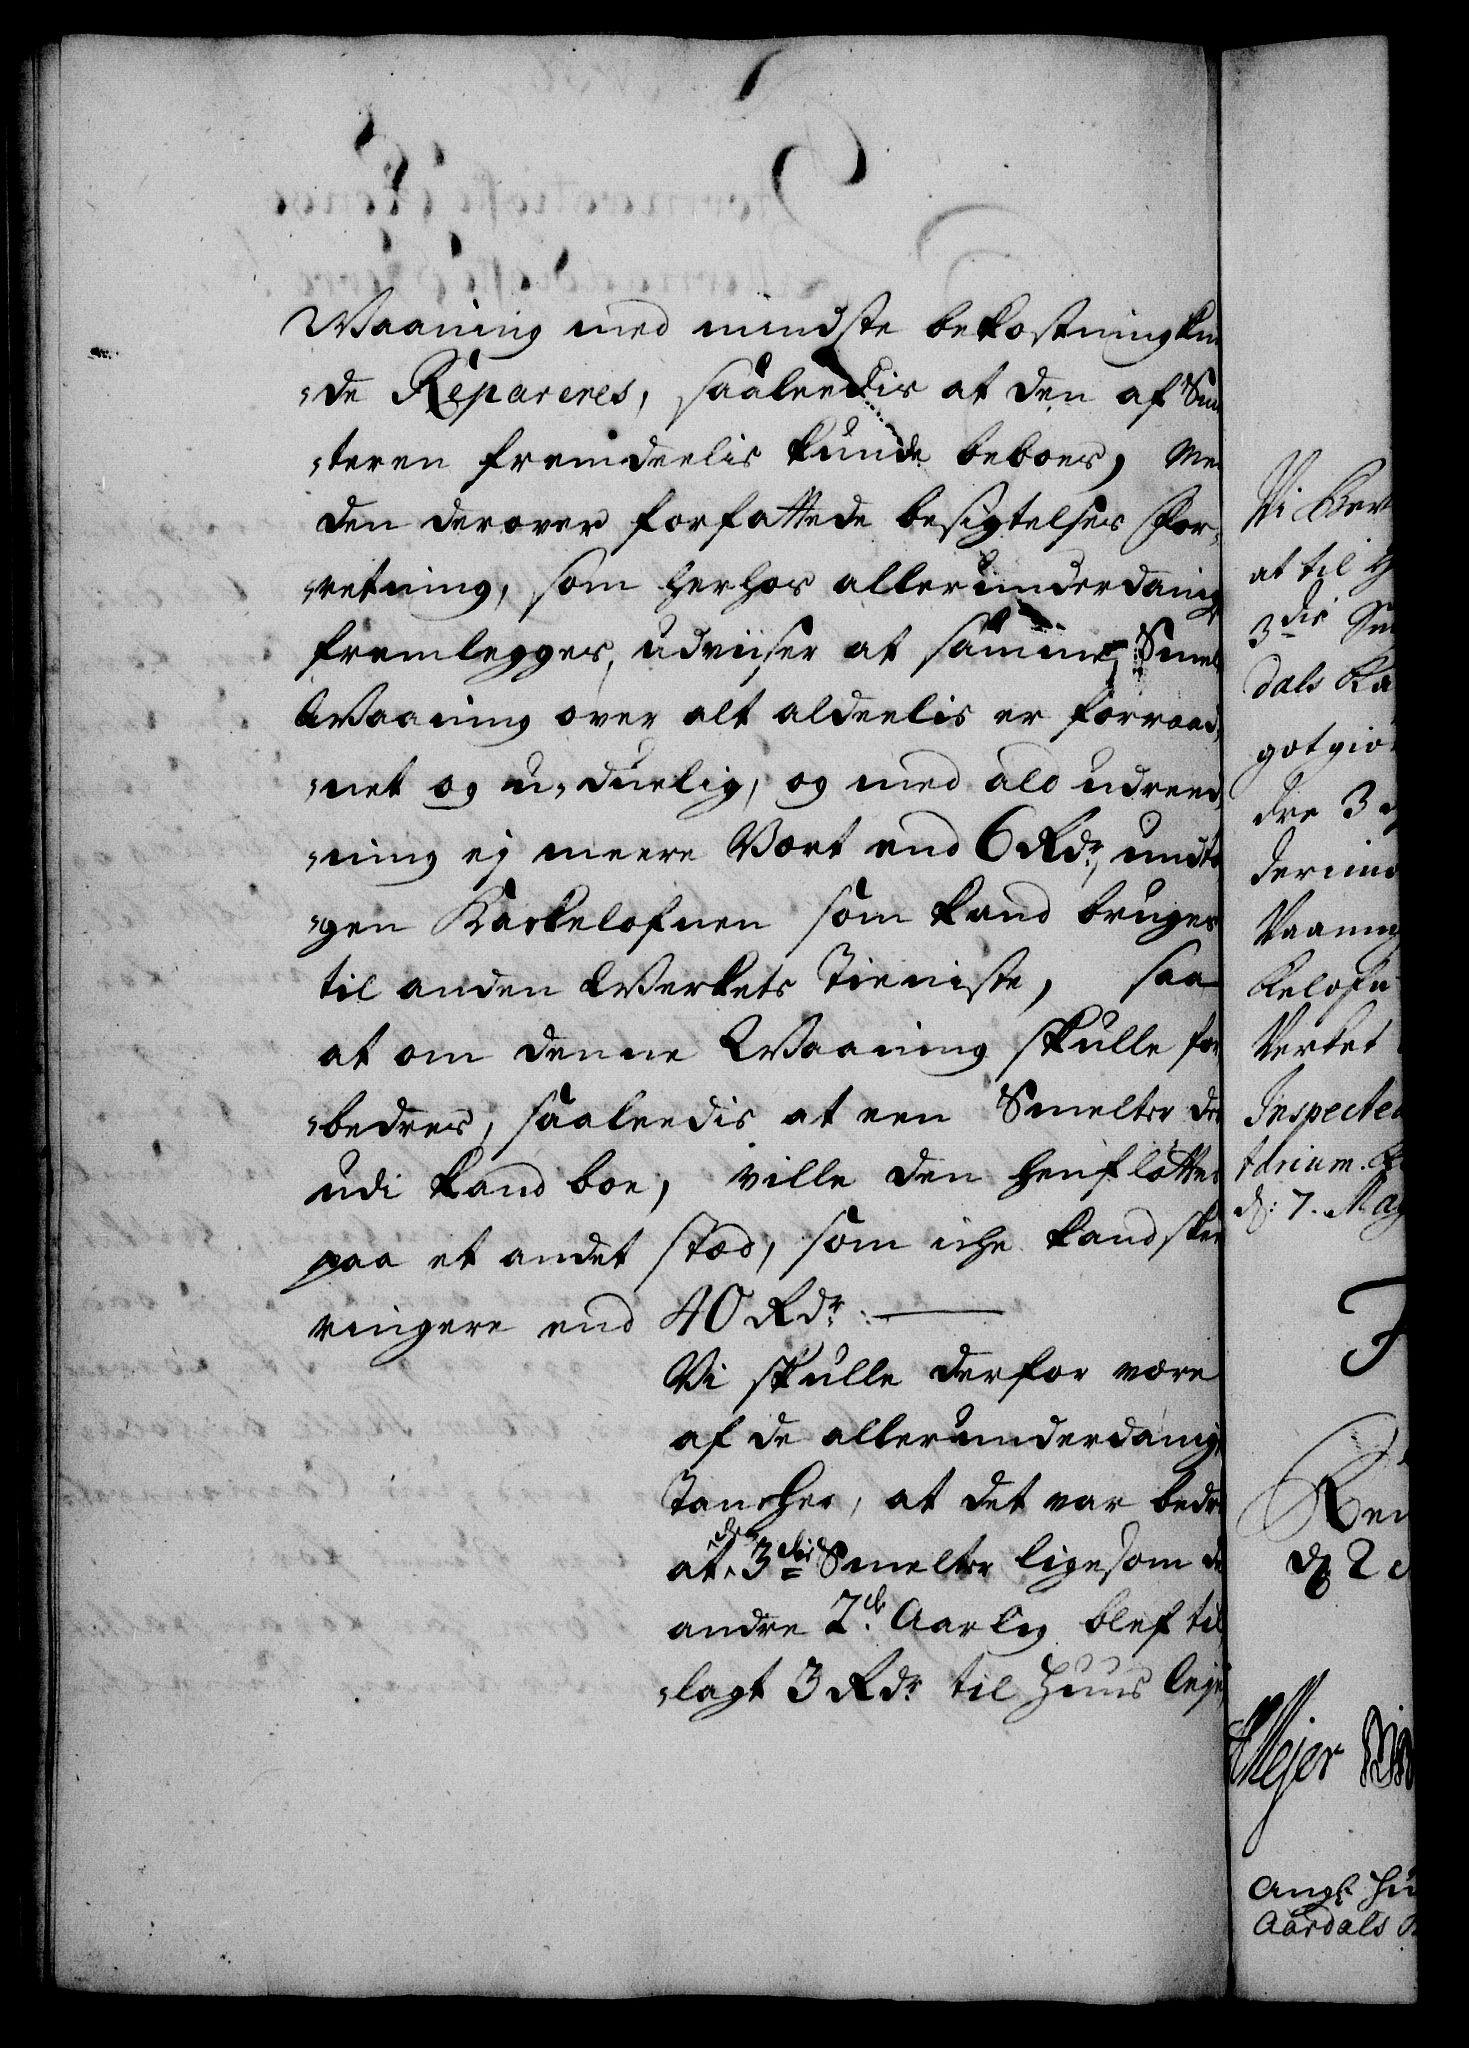 Waaning med mindste bekostning kun
-de Repareres, saaleedis at den af Smel
-teren fremdeelis kunde beboes, Men
den derover forfattede besigtelses for-
-retning, som herhos allerunderdanigst
fremlegges, udviiser at samme Smel
Waaning over alt aldeelis er forraad,
-net og u-duelig, og med ald udreed,
-ning ej meere Vært end 6 Rdr, undta
-gen Kackelofnen som kand bruges
til anden Werkets Tieniste, saa
at om denne Waaning skulle for
-bedres, saaleedis at een Smelter der
udi kand boe, ville den henfløttes
paa et andet stæd, som iche kand skee
ringere end 40 Rdr: ―
Vi skulle derfor være
af de allerunderdanigste
Tancher, at det var bedre
at den 3die Smelter ligesom de
andre 2de Aarlig blef til,
-lagt 3 Rdr til Huus leje,
Vi
at til
3die
dals
dre 3
Vaaning
kelofn
Verket
Inspecteu
d: 7. May
Mejer
Aardals